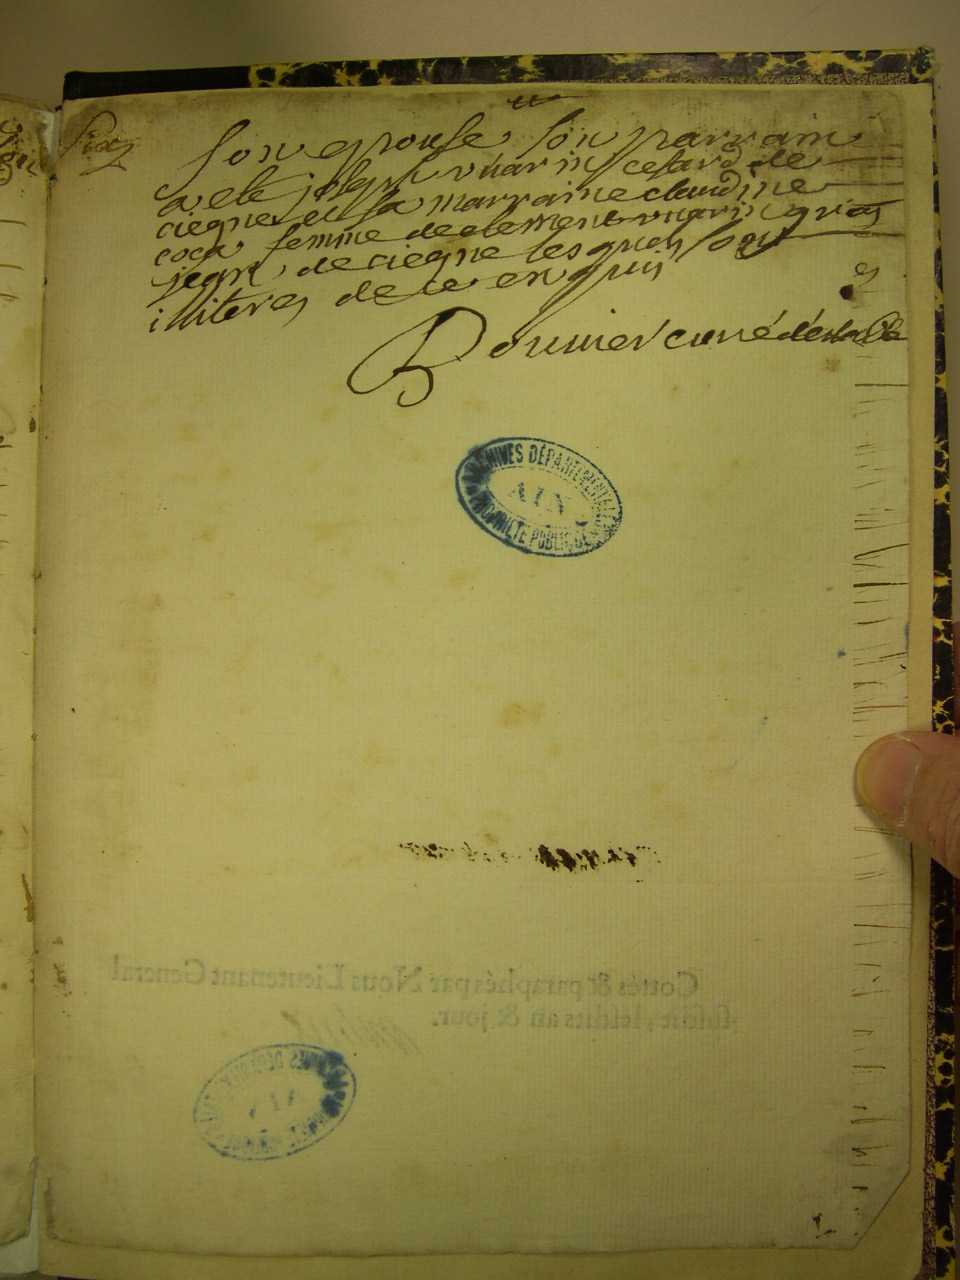 Six
Son epouse, Son parrain
a eté joseph vuarin cesard de
ciegne et sa marraine claudine
coca femme de clement vuarin gros
jean, de ciegne lesquels sont
illiteres de ce enquis
Bonnier curé
ARCHIVES DÉPARTEMENTALES
AIN
PROPRIÉTÉ PUBLIQUE
Cottés & paraphés par Nous Lieutenant General
susdit, lesdits an & jour.
AIN